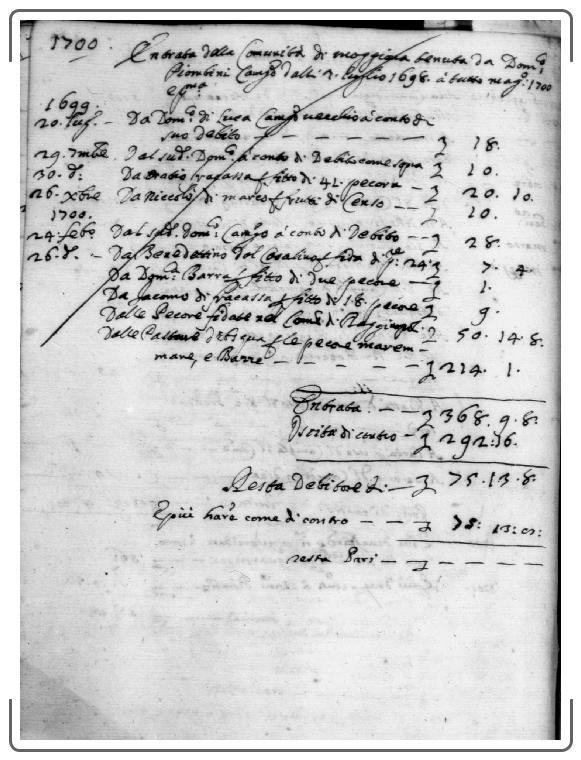 1700.
Entrata della Comunità di Moggiona tenuta da Dom:º
Piombini Camg:º dalli 2. luglio 1698. a tutto mag:º 1700
1699.
20. lug. - Da Dom:º di Luca Camg:º vecchio à conto di
suo debito - - - - 18.
29. 7mbre. Dal sud:º Dom:º à conto di Debito come sopra 10.
30. d:º Da Orazio fracassa p fitto di 41. pecora - 20. 10.
26. xbre Da Niccolò di marco p frutti di Censo - - 10.
1700.
24. febº. Dal sud:º Dom:º Camg:º à conto di Debito - - 28.
26. d:º - Da Benedettino dal Casalino p fida di 24. 7. 4
Da Dom:º Barra p fitto di due pecore - 1.
Da Jacomo di fracassa p fitto di 18. pecore 9.
Dalle Pecore fidate nel Com:e di 50. 14. 8.
Dalle Pasture p le pecore marem-
mane, e Barre - - - - - 214. 1.
Entrata - - 368. 9. 8.
Uscita di contro - 292: 16.
Resta Debitore d. - 75. 13. 8.
E più have come di contro - - - 75: 13:
resta Pari - - - - -